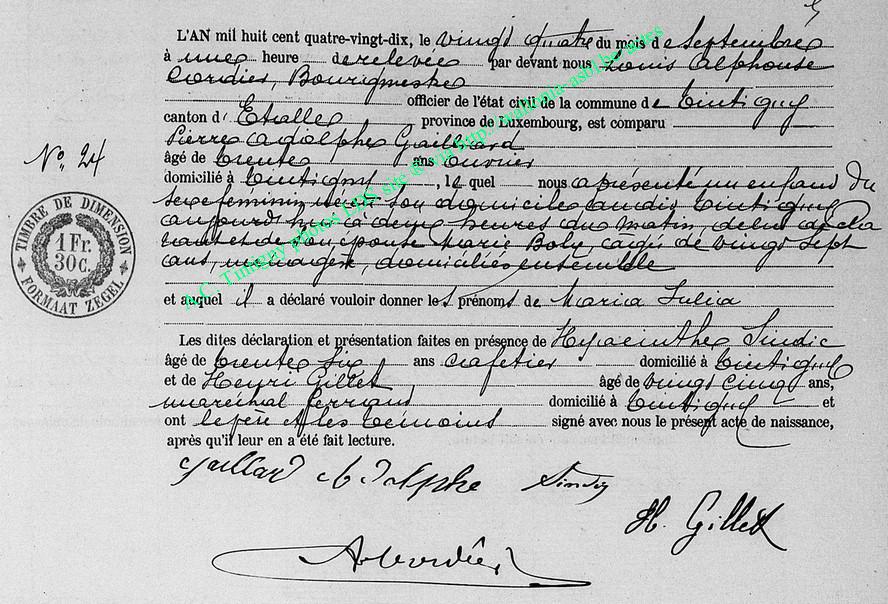 L'AN mil huit cent quatre-vingt-dix, le vingt quatre du mois de Septembre
à une heure de relevée par devant nous Louis Alphonse
Cordier, Bourgmestre
officier de l'état civil de la commune de Tintigny
canton d'Etalle province de Luxembourg, est comparu
Pierre Adolphe Gaillard
âgé de trente ans ouvrier
domicilié à Tintigny, lequel nous a présenté un enfant du
sexe feminin né en son domicile audit Tintigny
aujourd'hui à deux heures du matin, de lui décla
rant et de son épouse Marie Boly, agée de vingt sept
ans, ménagère, domiciliés ensemble
et auquel il a déclaré vouloir donner les prénoms de Maria Julia
Les dites déclaration et présentation faites en présence de Hyacinthe Sindic
âgé de trente six ans cafetier domicilié à Tintigny
et de Henri Gillet âgé de vingt cinq ans,
maréchal ferrant domicilié à Tintigny et
ont le père et les témoins signé avec nous le présent acte de naissance,
après qu'il leur en a été fait lecture.
No. 24
TIMBRE DE DIMENSION
1 Fr.
30 c.
FORMAAT ZEGEL
Gaillard Adolphe Sindic
H. Gillet
A Cordier
A.C. Tintigny photos LDS site